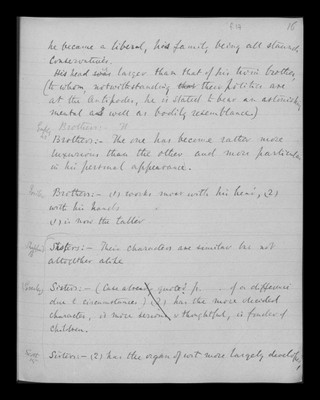 16
he became a liberal, his family being all staunch
Conservatives.
His head was larger than that of his twin brother
(to whom, notwithstanding their politics are
at the Antipodes, he is stated to bear an astonishing
mental as well as bodily resemblance)
Brothers:-
Brothers:- The one has become rather more
luxurious than the other and more particular
in his personal appearance.
Brothers:- (1) works more with his head, (2)
with his hands
(1) is now the taller
Sisters:- Their characters are similar but not
altogether alike
Sisters:- (Case already quoted p. of a difference
due to circumstances) (2) has the more decided
character, is more serious & thoughtful, is fonder of
children.
Sisters:- (2) has the organ of wit more largely developed